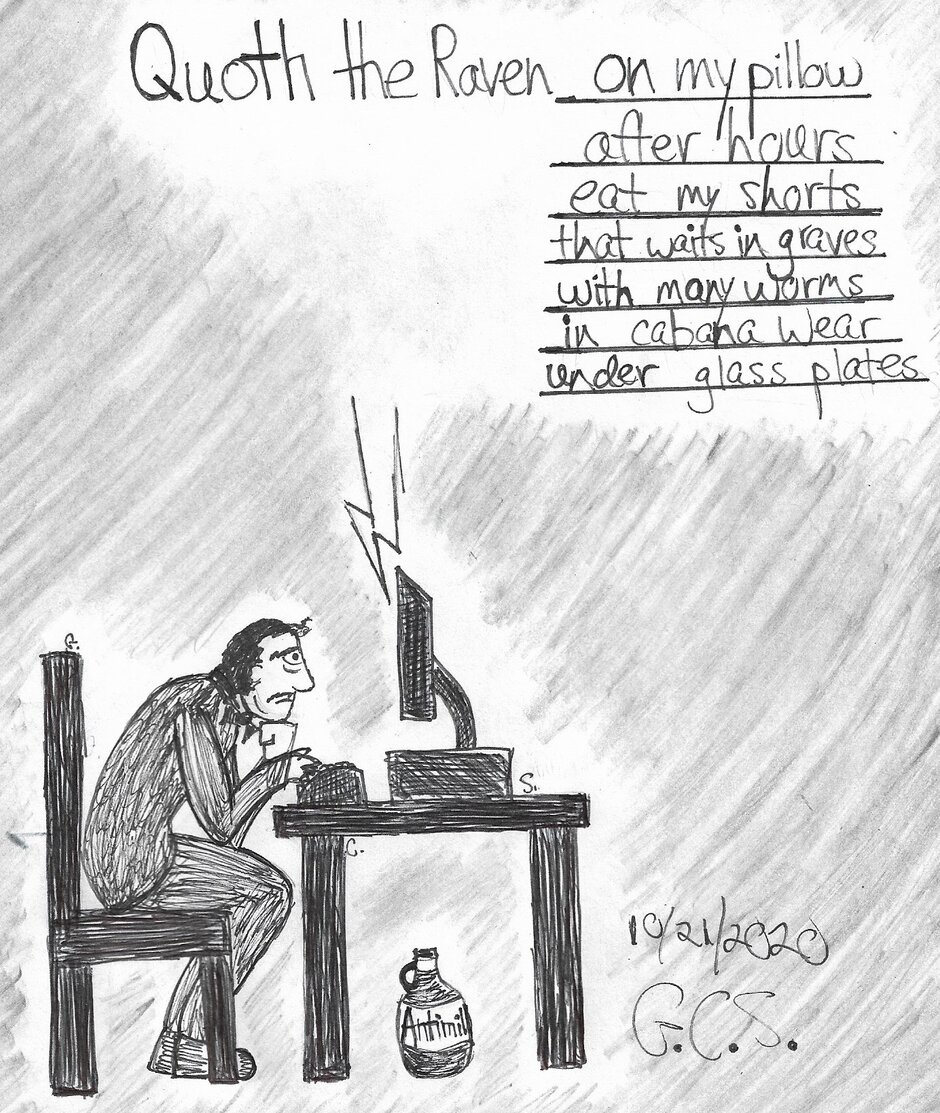 Quoth the Raven on my pillow
after hours
eat my shorts
that waits in graves
with many worms
in cabana wear
under glass plates
G.
S.
C.
Antimilk
10/21/2020
G.C.S.